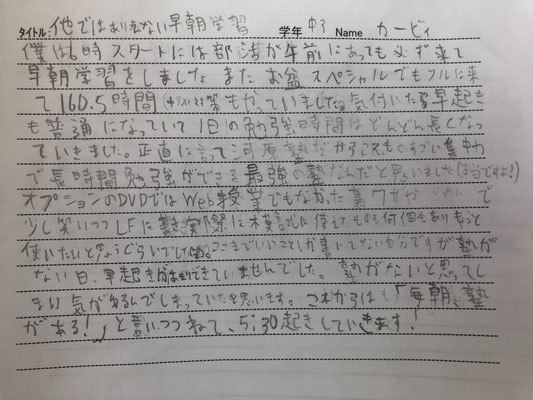 タイトル: 他ではあり得ない早朝学習 学年 中3 Name カービィ
僕は6時スタートには部活が午前にあっても必ず来て
早朝学習をしました。また お盆スペシャルでもフルに来
て160.5時間(テスト対策もやっていました。気付いたら早起き
も普通になっていて1日の勉強時間はどんどん長くなっ
ていきました。正直に言って河原塾だからこそものすごい集中力
で長時間勉強ができる最強の塾なんだと思いました(本当ですよ!)
オプションのDVDではWeb授業でもなかった裏ワザが で
少し笑いつつLFに 模試に使えたものも何個もありもっと
使いたいと思うぐらいでした。ここまでいいことしか書いてない自分ですが塾が
ない日、早起きがあまりできていませんでした。塾がないと思ってし
まい気がゆるんでしまっていたと思います。これからは「毎朝、塾
がある!」と言いつつねて、5:30起きしていきます!